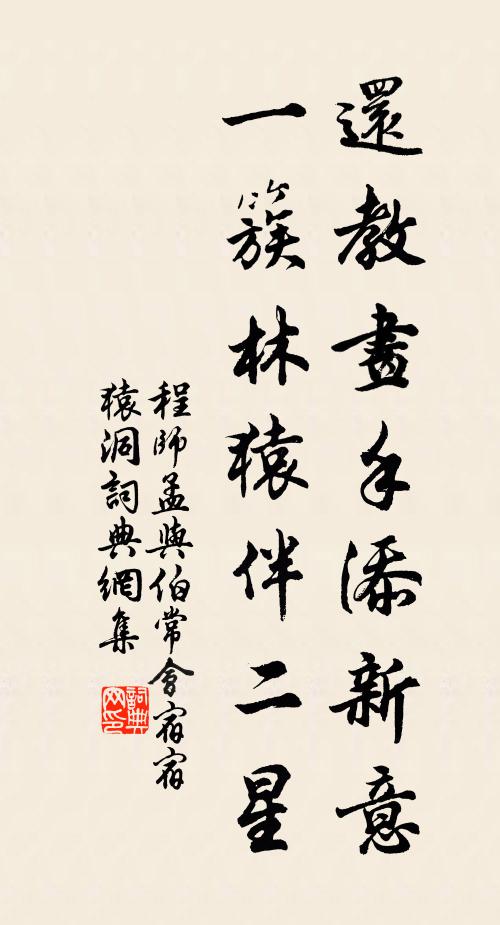 還教畫手添新意
一簇林猿伴二星
程師孟與伯常會宿宿
猿洞詞典網集
詞典网印